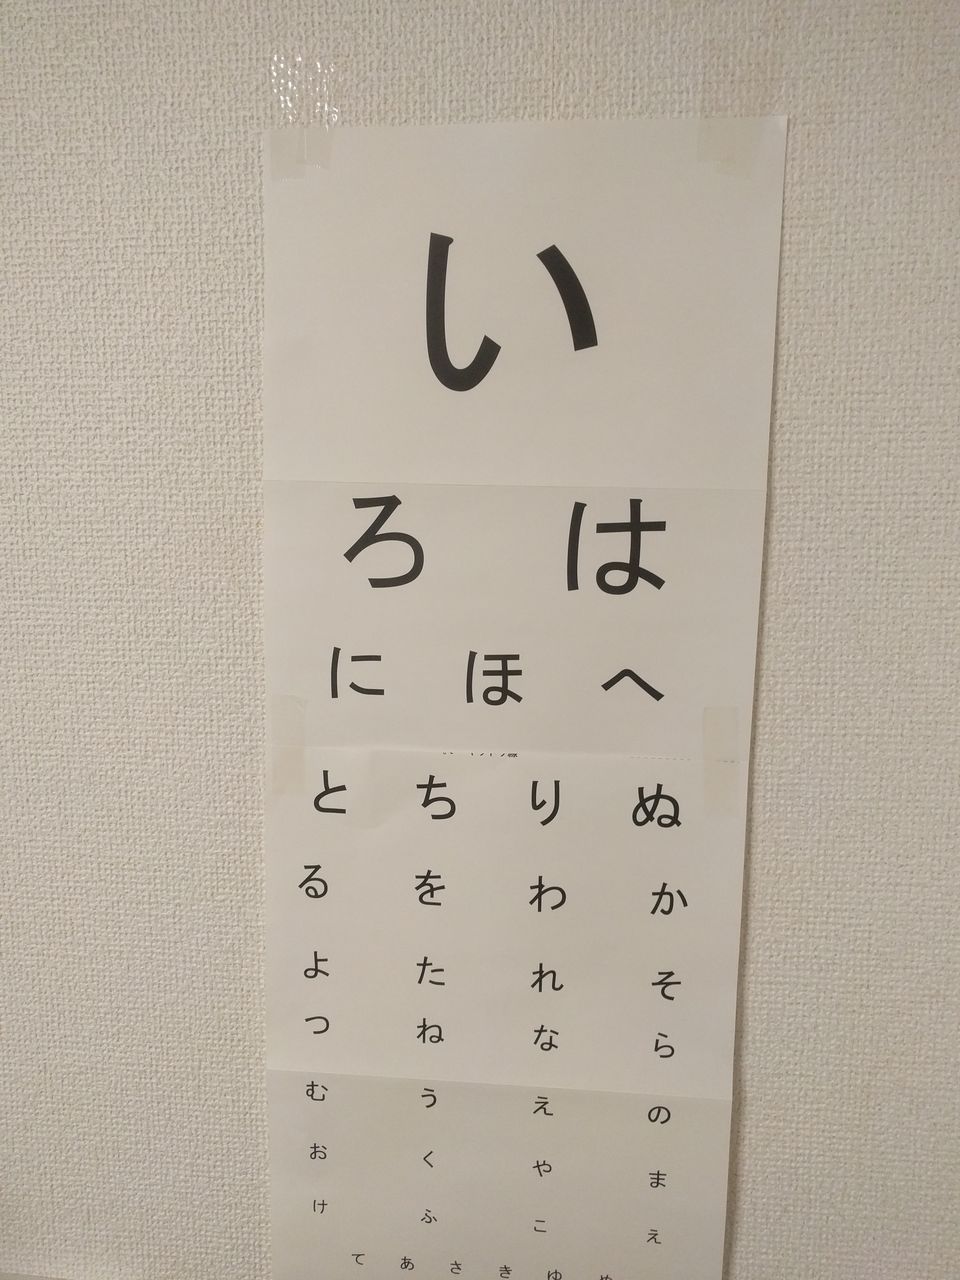 い
ろ は
に ほ へ
と ち り ぬ
る を わ か
よ た れ そ
つ ね な ら
む う え の
お く や ま
け ふ こ え
て あ さ き ゆ